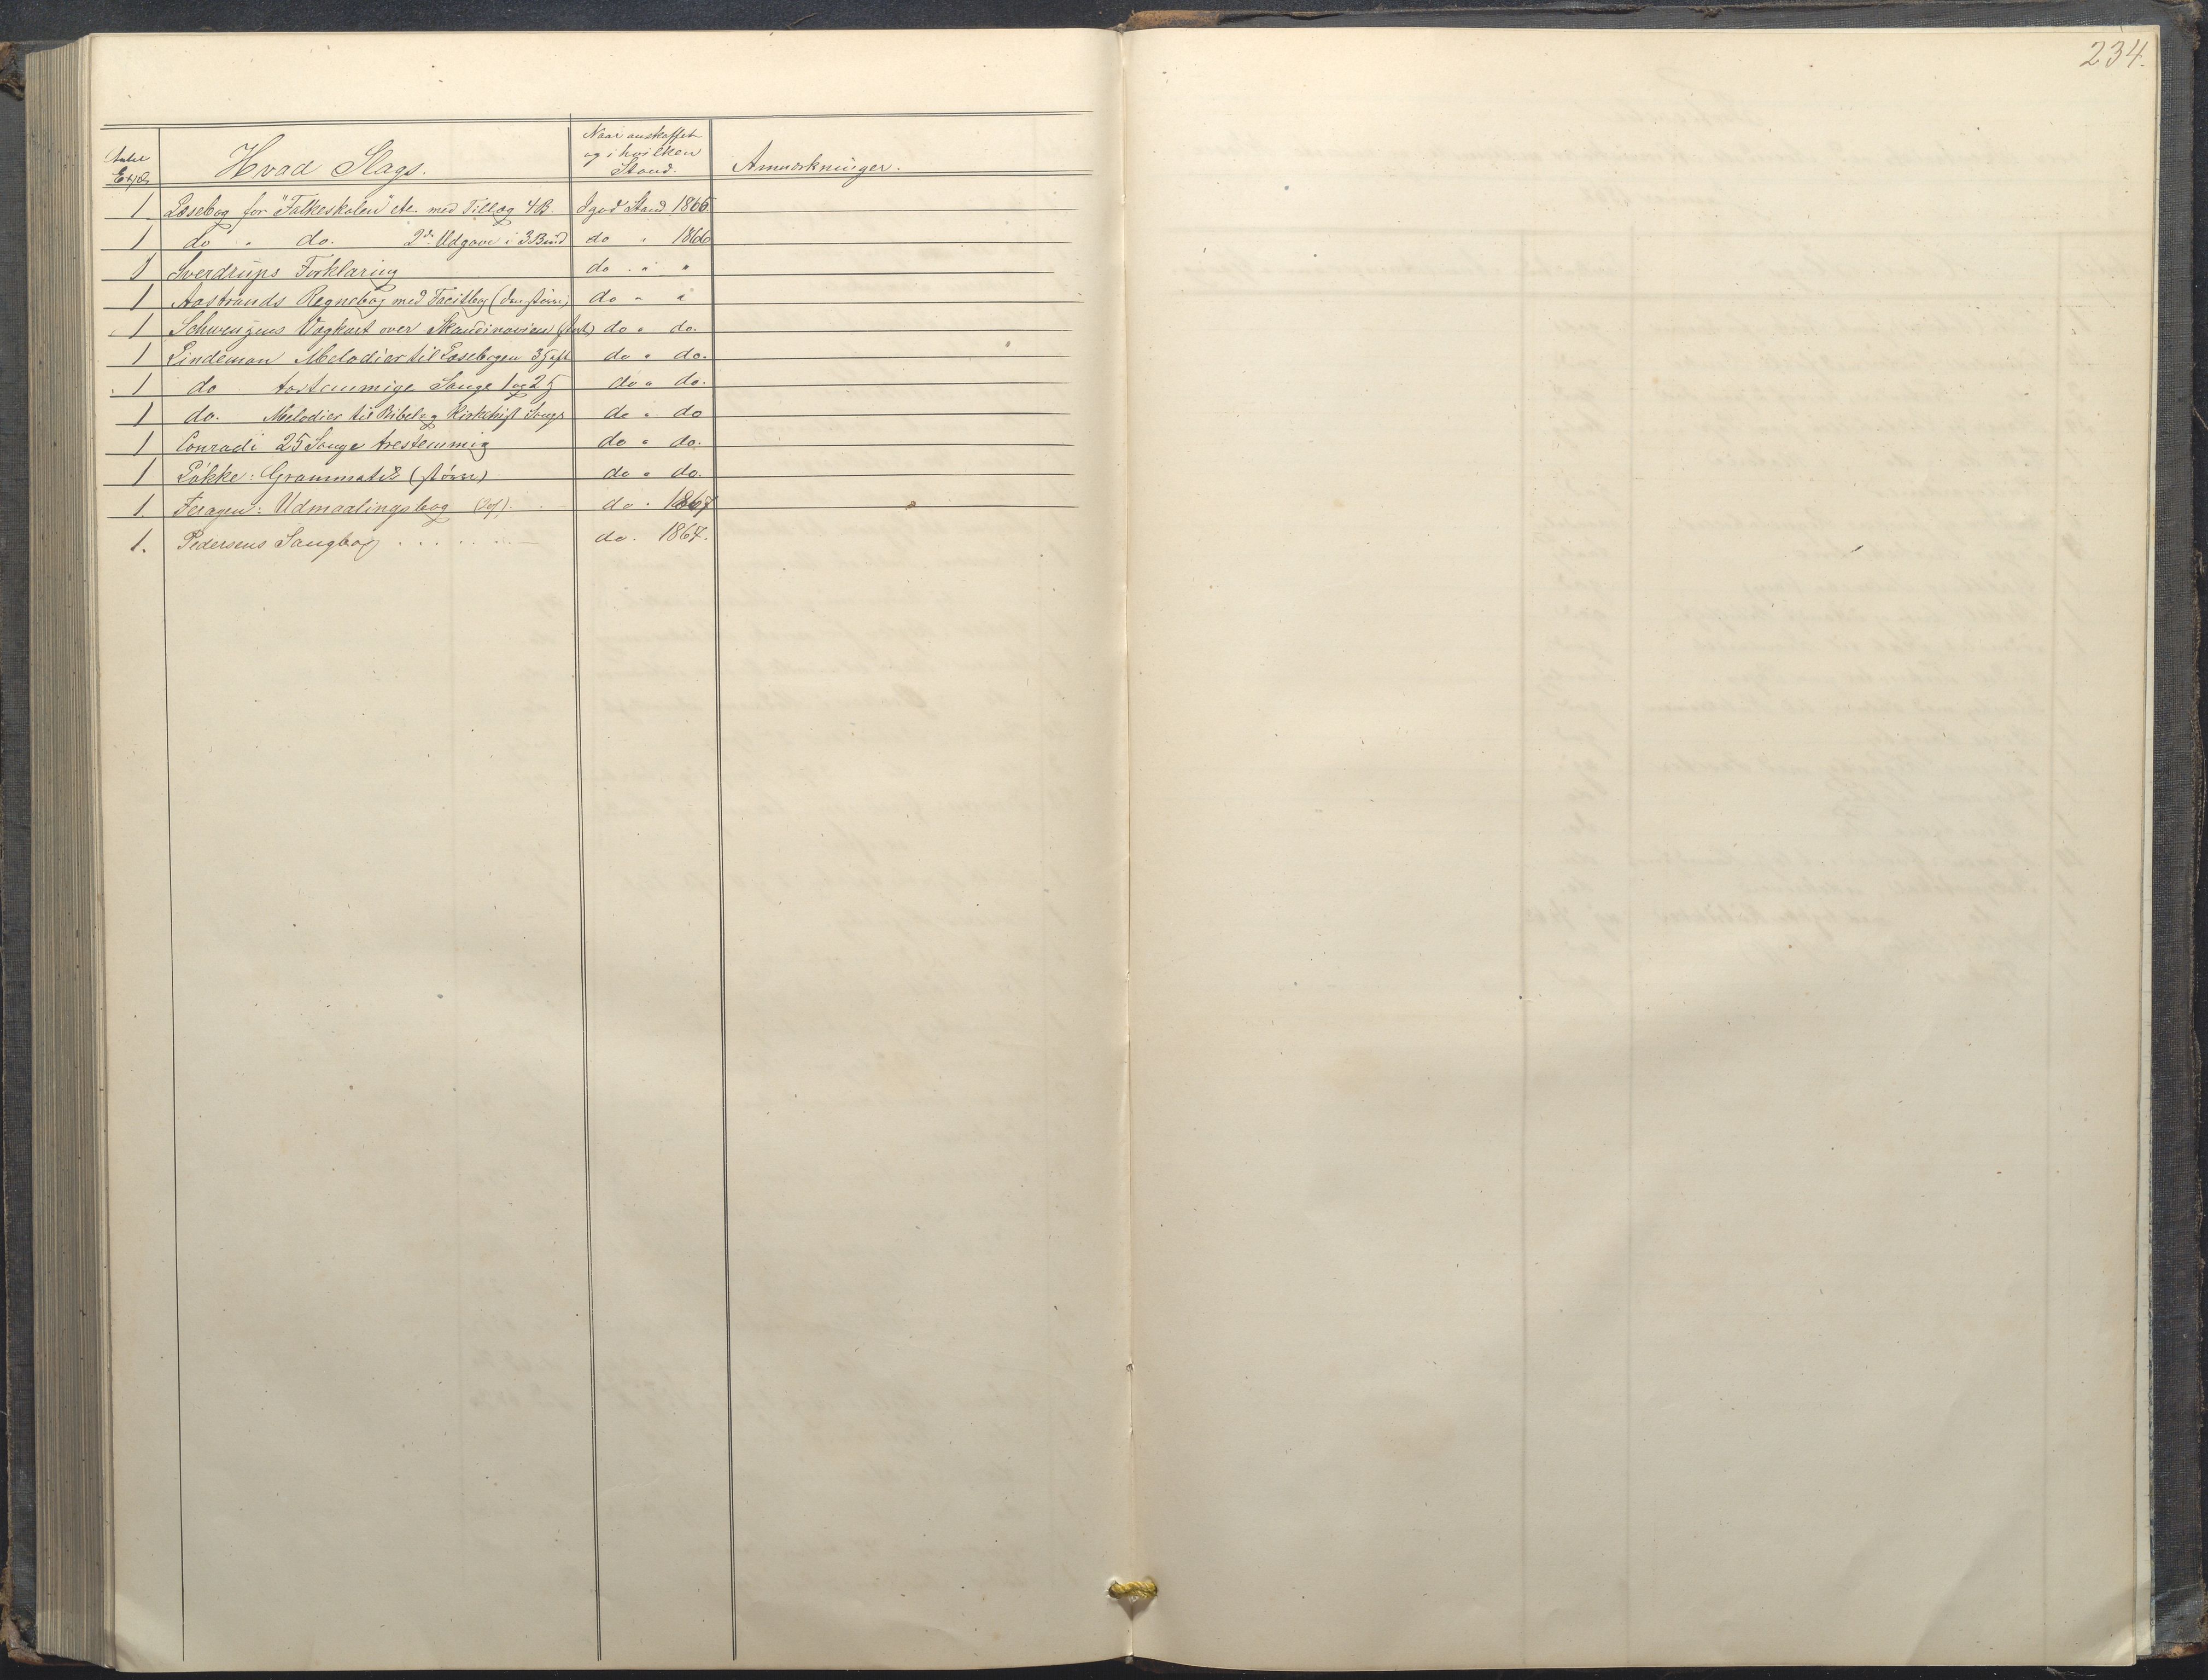 234.
Antal Expl. Hvad Slags. Naar anskaffet og i hvilken Stand. Anmærkninger.
1 Læsebog for "Folkeskolen" etc. med Tillæg 4 B. I god Stand 1866.
1 do " do. 2den Udgave i 3 Bind do " 1866
1 Sverdrups Forklaring do . " "
1 Aastrands Regnebog med Facitbog (den større) do " "
1 Schwenzens Vægkart over Skandinavien do " do.
1 Lindeman Melodier til Læsebogen 3 Hft do " do.
1 do tostemmige Sange 1 og 2 H do " do.
1 do. Melodier til Bibel og Kirkehist Sange do " do
1 Conradi 25 Sange trestemmig do " do.
1 Løkke: Grammatik (større) do " do.
1. Feragen: Udmaalingsbog do " 1867
1. Pedersens Sangbog . . . . . . do. 1867.